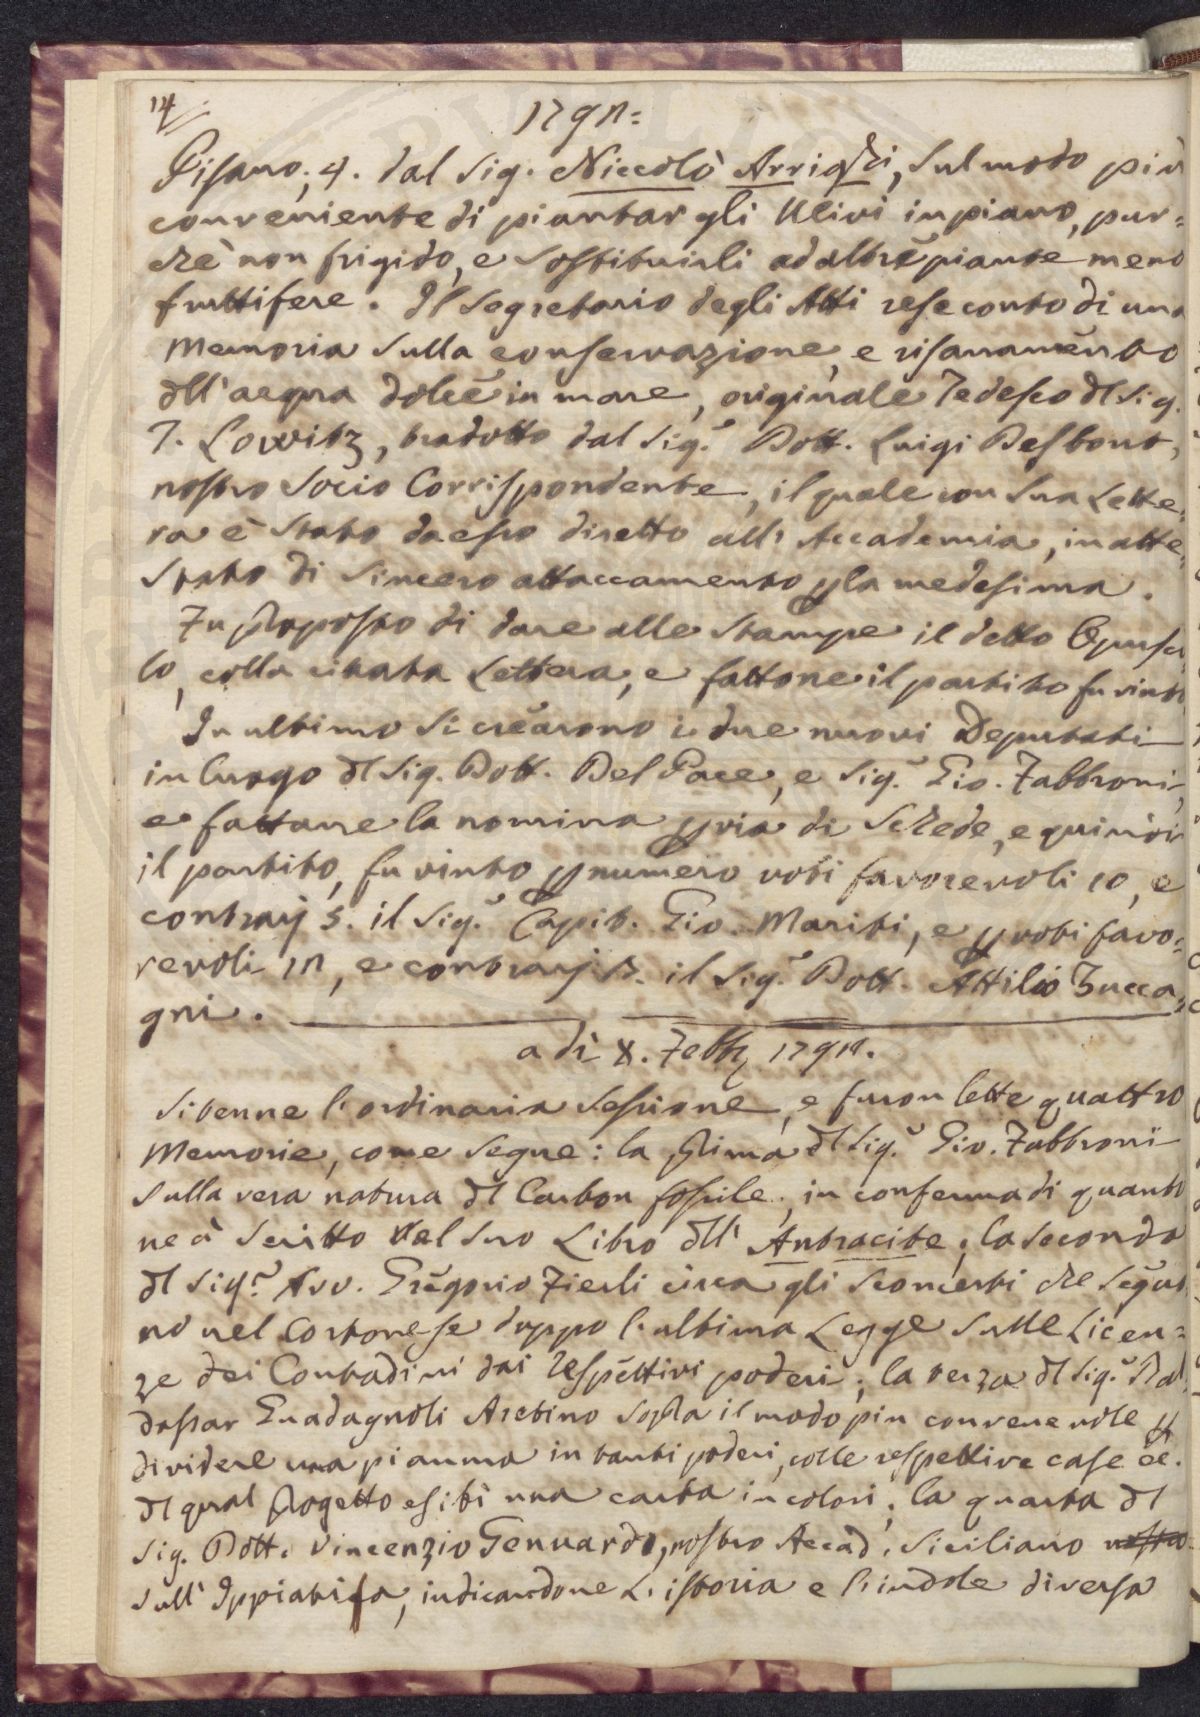 14
1791=
Pisano; 4. dal Sig. Niccolò Arrighi, sul modo più
conveniente di piantar gli Ulivi in piano, pur=
chè non frigido, e sostituirli ad altre piante meno
fruttifere. Il Segretario degli Atti rese conto di una
Memoria sulla conservazione, e risanamento
dll'acqua dolce in mare, originale Tedesco dl Sig.
T. Lowitz, tradotto dal Sigr. Dott. Luigi Desbout,
nostro Socio Corrispondente, il quale con sua Lette=
ra è stato da esso diretto all'Accademia, in atte=
stato di sincero attaccamento p la medesima.
Fu proposto di dare alle stampe il detto Opusco
lo, colla citata Lettera, e fattone il partito fu vinto
In ultimo si crearono i due nuovi Deputati
in luogo dl Sig. Dott. Del Pace, e Sigr. Gio. Fabbroni,
e fattane la nomina p via di Schede, e quindi
il partito, fu vinto p numero voti favorevoli 10, e
contrarj 5. il Sigr. Capit. Gio. Mariti, e p voti favo=
revoli 11, e contrarj il Sigr. Dott. Attilio Zucca=
gni.
a dì X. Febb 1791.
Si tenne l'ordinaria Sessione, e furon lette quattro
Memorie, come segue: la prima dl Sigr. Gio. Fabbroni
sulla vera natura dl Carbon fossile, in conferma di quanto
ne à scritto nel suo Libro dll'Antracite; la seconda
dl Sigr. Avv. Gregorio Fierli circa gli sconcerti che seguo
no nel Cortonese doppo l'ultima Legge sulle Licen=
ze dei Contadini dai respettivi poderi; la terza dl Sigr. Bal
dassar Guadagnoli Aretino sopra il modo più convenevole p
dividere una pianura in tanti poderi, colle respettive case &c.
dl qual progetto esibì una carta in colori; la quarta dl
Sig. Dott. Vincenzio Gennardo, nostro Accad. Siciliano nostro
sull'Ippiatrica, indicandone l'istoria e l'indole diversa